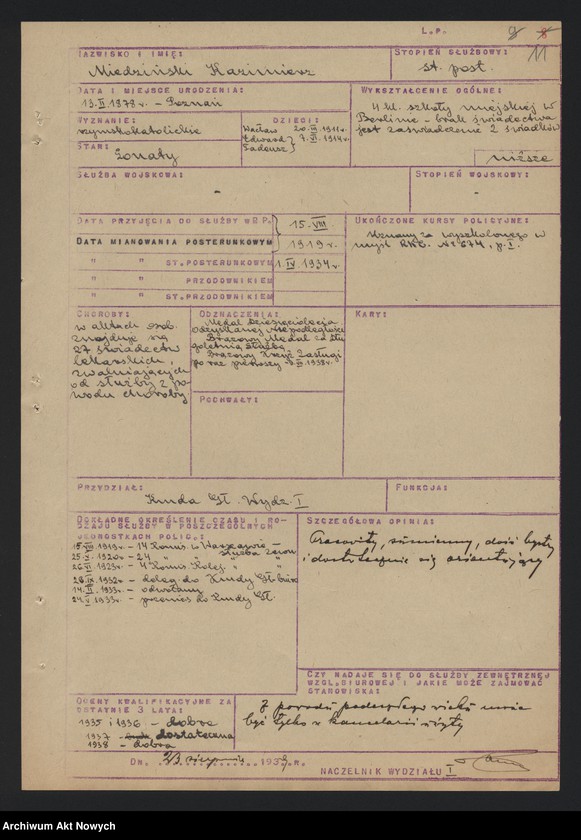 L.P.
11
NAZWISKO I IMIĘ:
Miedziński Kazimierz
STOPIEŃ SŁUŻBOWY:
st. post.
DATA I MIEJSCE URODZENIA:
13.II.1878 r. - Poznań
WYKSZTAŁCENIE OGÓLNE:
4 kl. szkoły miejskiej w
Berlinie - brak świadectwa
jest zaświadczenie 2 świadków
niższe
WYZNANIE:
rzymskokatolickie
DZIECI:
Wacław 20.IX.1911 r.
Edward } 7.VI.1914 r.
Tadeusz }
STAN:
żonaty
SŁUŻBA WOJSKOWA:
-
STOPIEŃ WOJSKOWY:
-
DATA PRZYJĘCIA DO SŁUŻBY W R.P.
15.VIII
DATA MIANOWANIA POSTERUNKOWYM
1919 r.
" " ST. POSTERUNKOWYM
1.IV 1934 r.
" " PRZODOWNIKIEM
" " ST. PRZODOWNIKIEM
UKOŃCZONE KURSY POLICYJNE:
Uznany za wyszkolonego w
myśl Rkz. № 674, p. I.
CHOROBY:
w aktach osob.
znajduje się
27 świadectw
lekarskich,
zwalniających
od służby z po-
wodu choroby
ODZNACZENIA:
Medal Dziesięciolecia
Odzyskanej Niepodległości
Brązowy Medal za Dłu
goletnią Służbę
Brązowy Krzyż Zasługi
po raz pierwszy 1938 r.
KARY:
POCHWAŁY:
PRZYDZIAŁ:
Kmda Gł. Wydz. I
FUNKCJA:
DOKŁADNE OKREŚLENIE CZASU I RO-
DZAJU SŁUŻBY W POSZCZEGÓLNYCH
JEDNOSTKACH POLIC.:
15.VIII 1919 r. - 14 Komis. w Warszawie -
służba zewn.
25.X.1920 r. - 24 " " "
26.VI 1923 r. - 4 Komis. Kolej. " "
26.IX.1932 r. - deleg. do Kmdy Gł.
14.II.1933 r. - odwołany
24.V.1933 r. - przenies. do Kmdy Gł.
SZCZEGÓŁOWA OPINIA:
Pracowity, sumienny, dość bystry
i dostatecznie się orientujący
CZY NADAJE SIĘ DO SŁUŻBY ZEWNĘTRZNEJ
WZGL. BIUROWEJ I JAKIE MOŻE ZAJMOWAĆ
STANOWISKA:
Z powodu podeszłego wieku może
być tylko w kancelarii użyty
OCENY KWALIFIKACYJNE ZA
OSTATNIE 3 LATA:
1935 i 1936 - dobra
1937 - dostateczna
1938 - dobra
DN. 23 sierpnia 1939 R.
NACZELNIK WYDZIAŁU I
Archiwum Akt Nowych